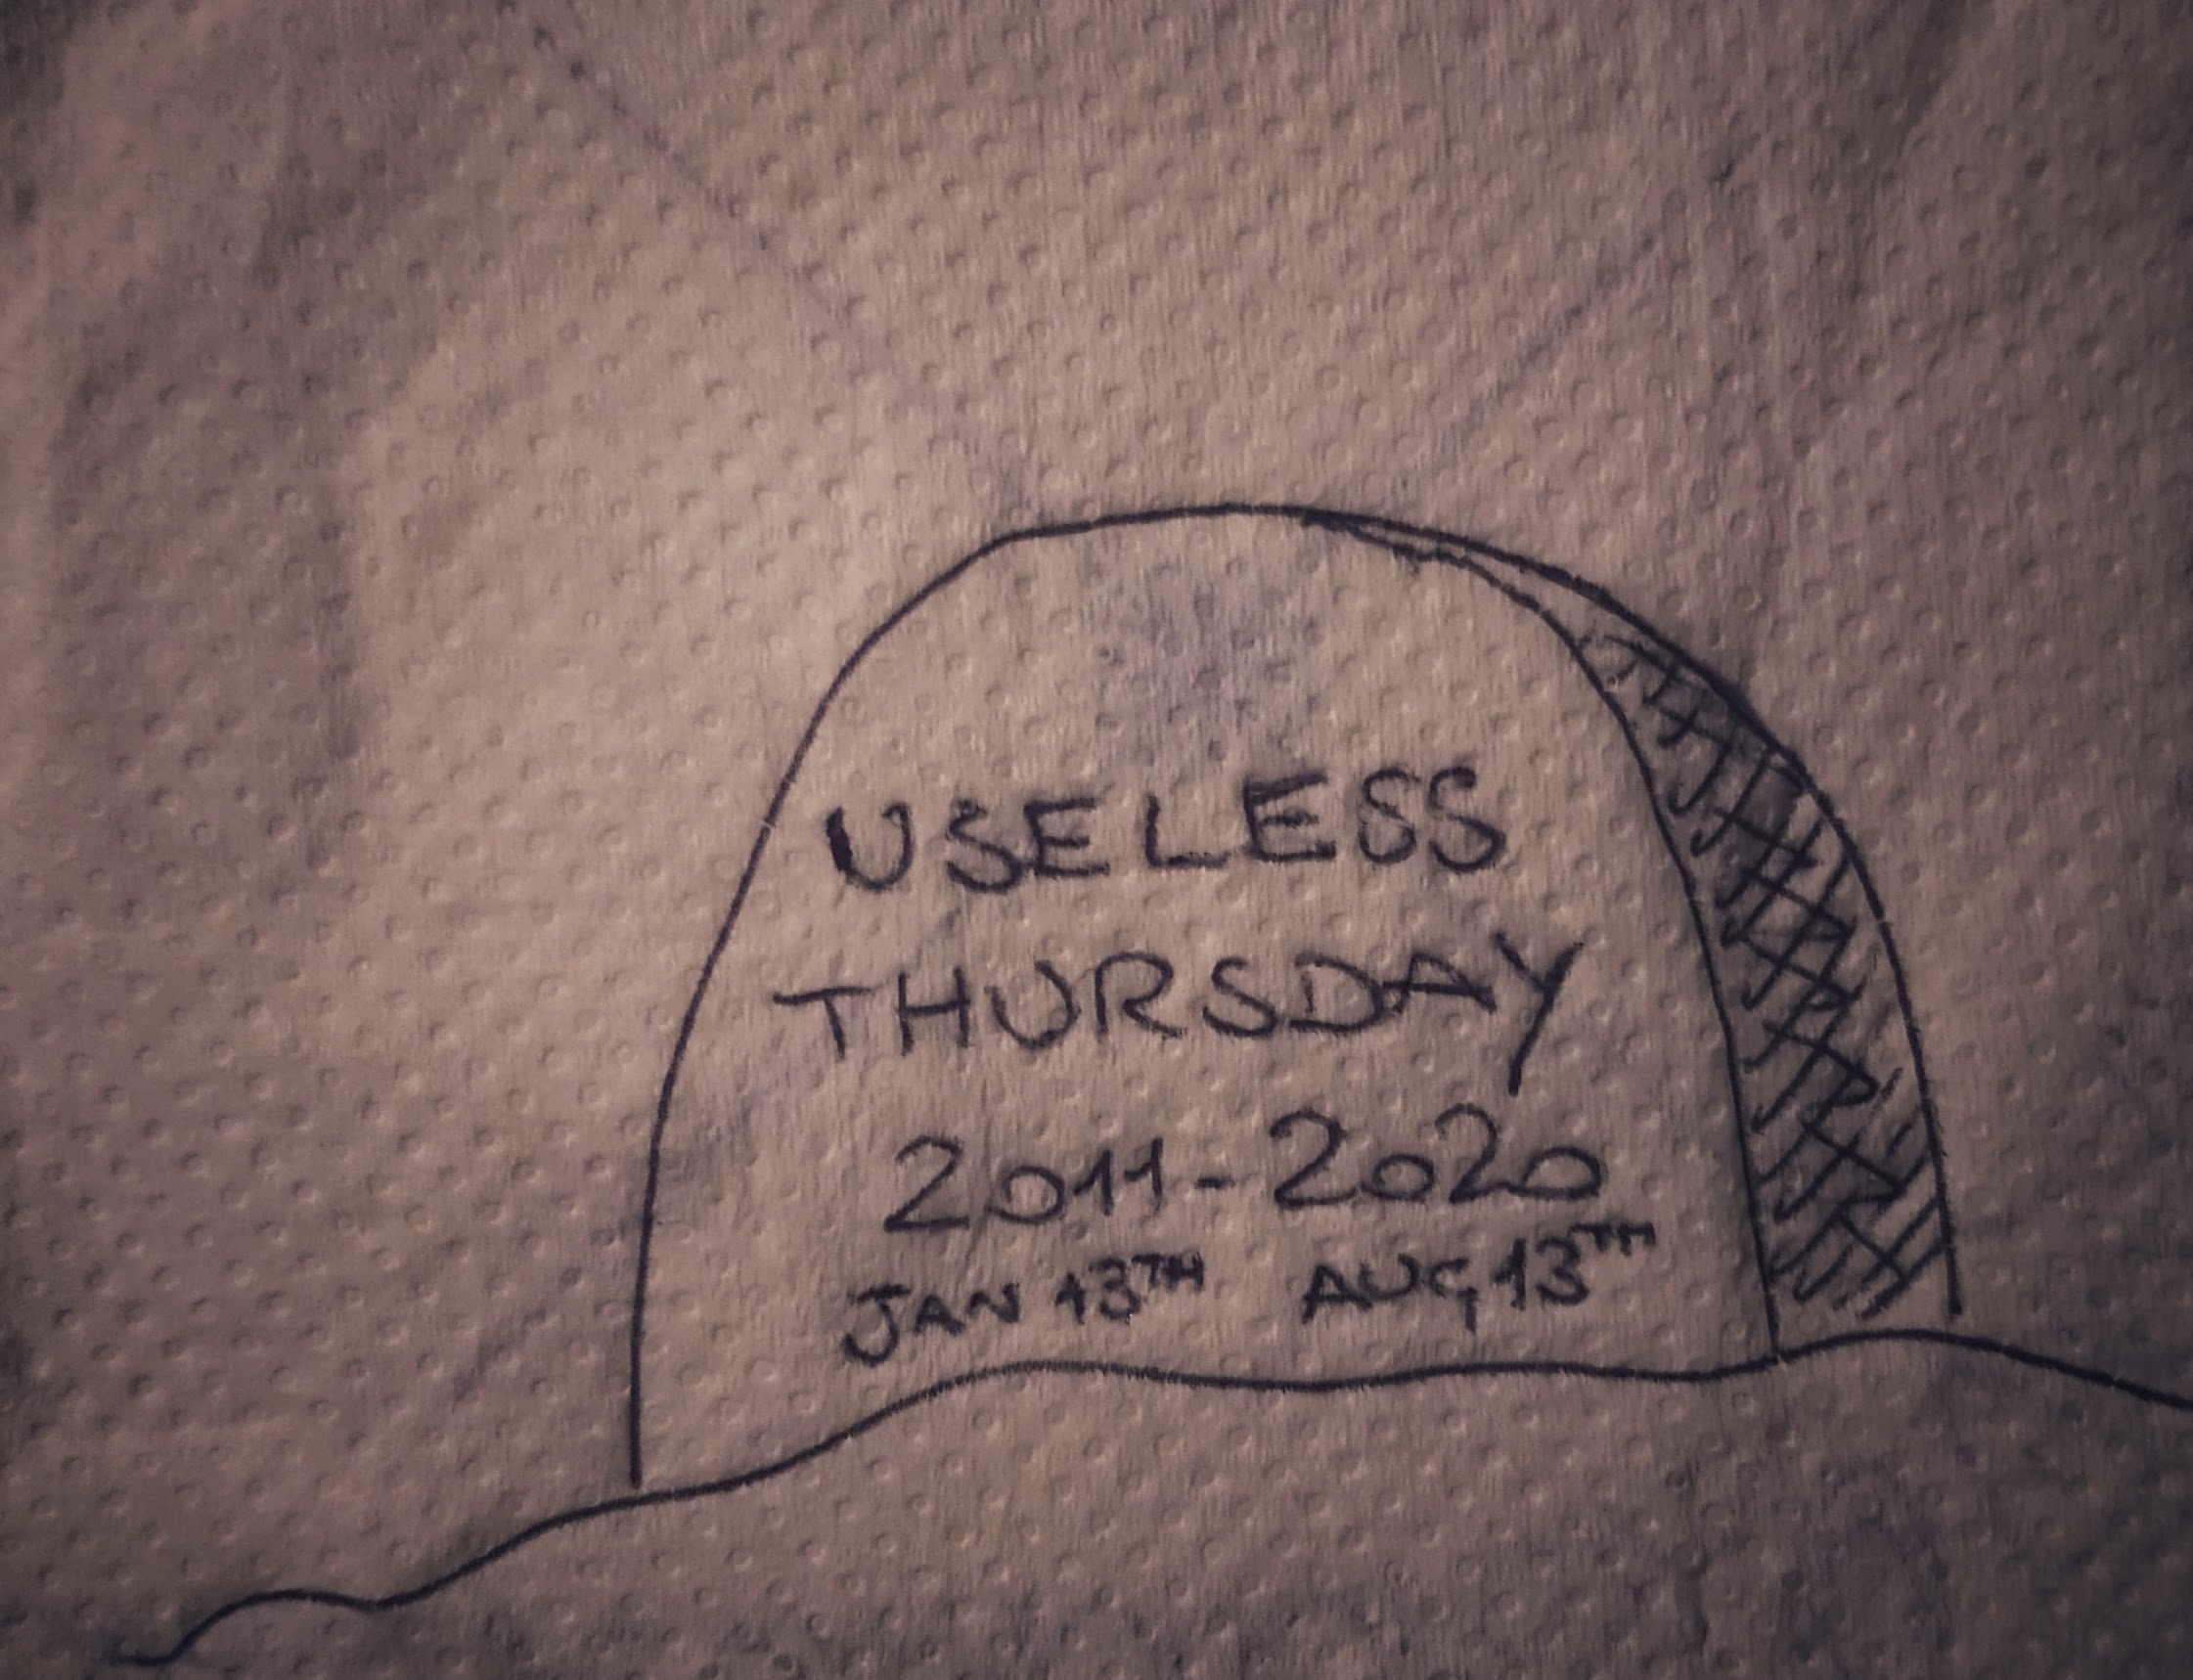 USELESS
THURSDAY
2011-2020
JAN 13TH AUG 13TH